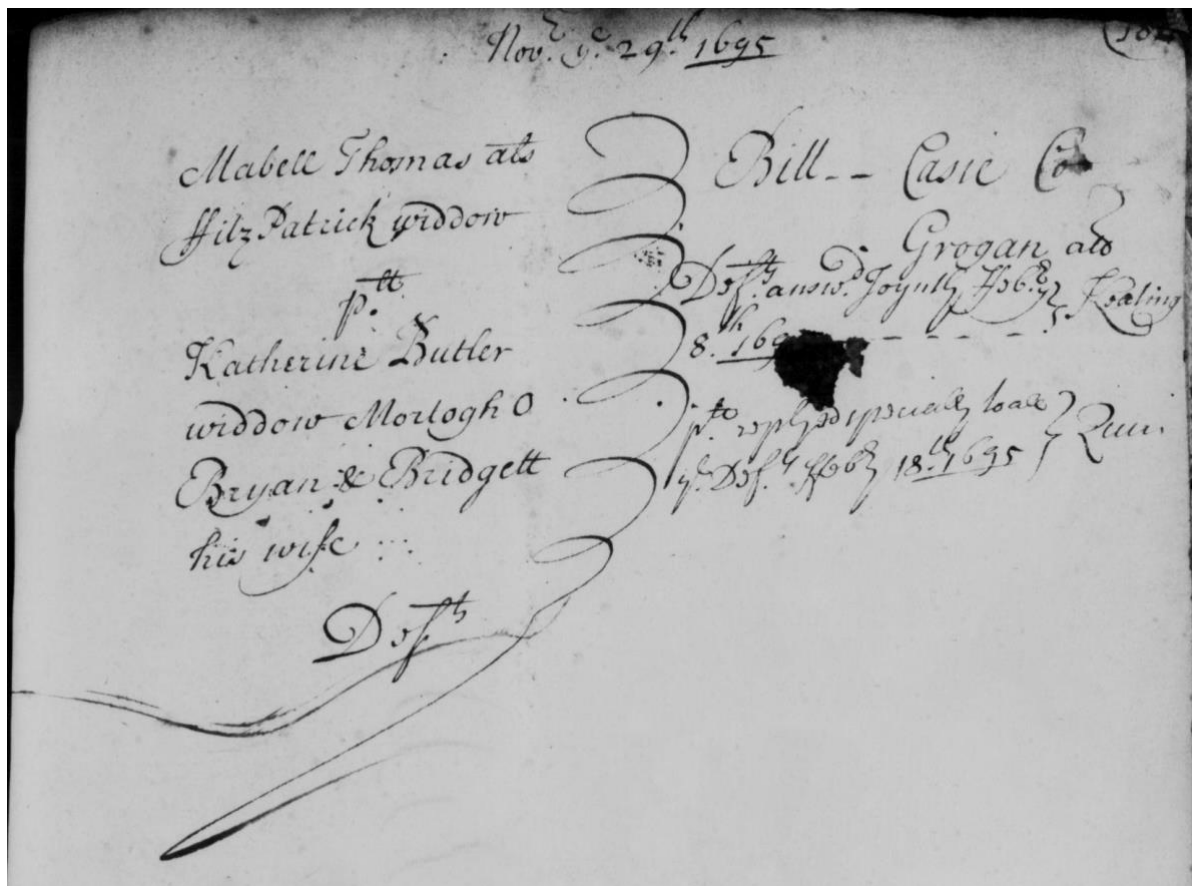 Nov.r ye. 29th. 1695
Mabell Thomas als
ffitzPatrick widdow
p.tt
Katherine Butler
widdow Mortogh O
Bryan & Bridgett
his wife
Defts
Bill -- Casie Co
Grogan als
Defts. answd. Joyntly Feb.ry Keating
8.th 169
p.tt replyed specially to all
ye. Defts. ffebry 18.th 1695